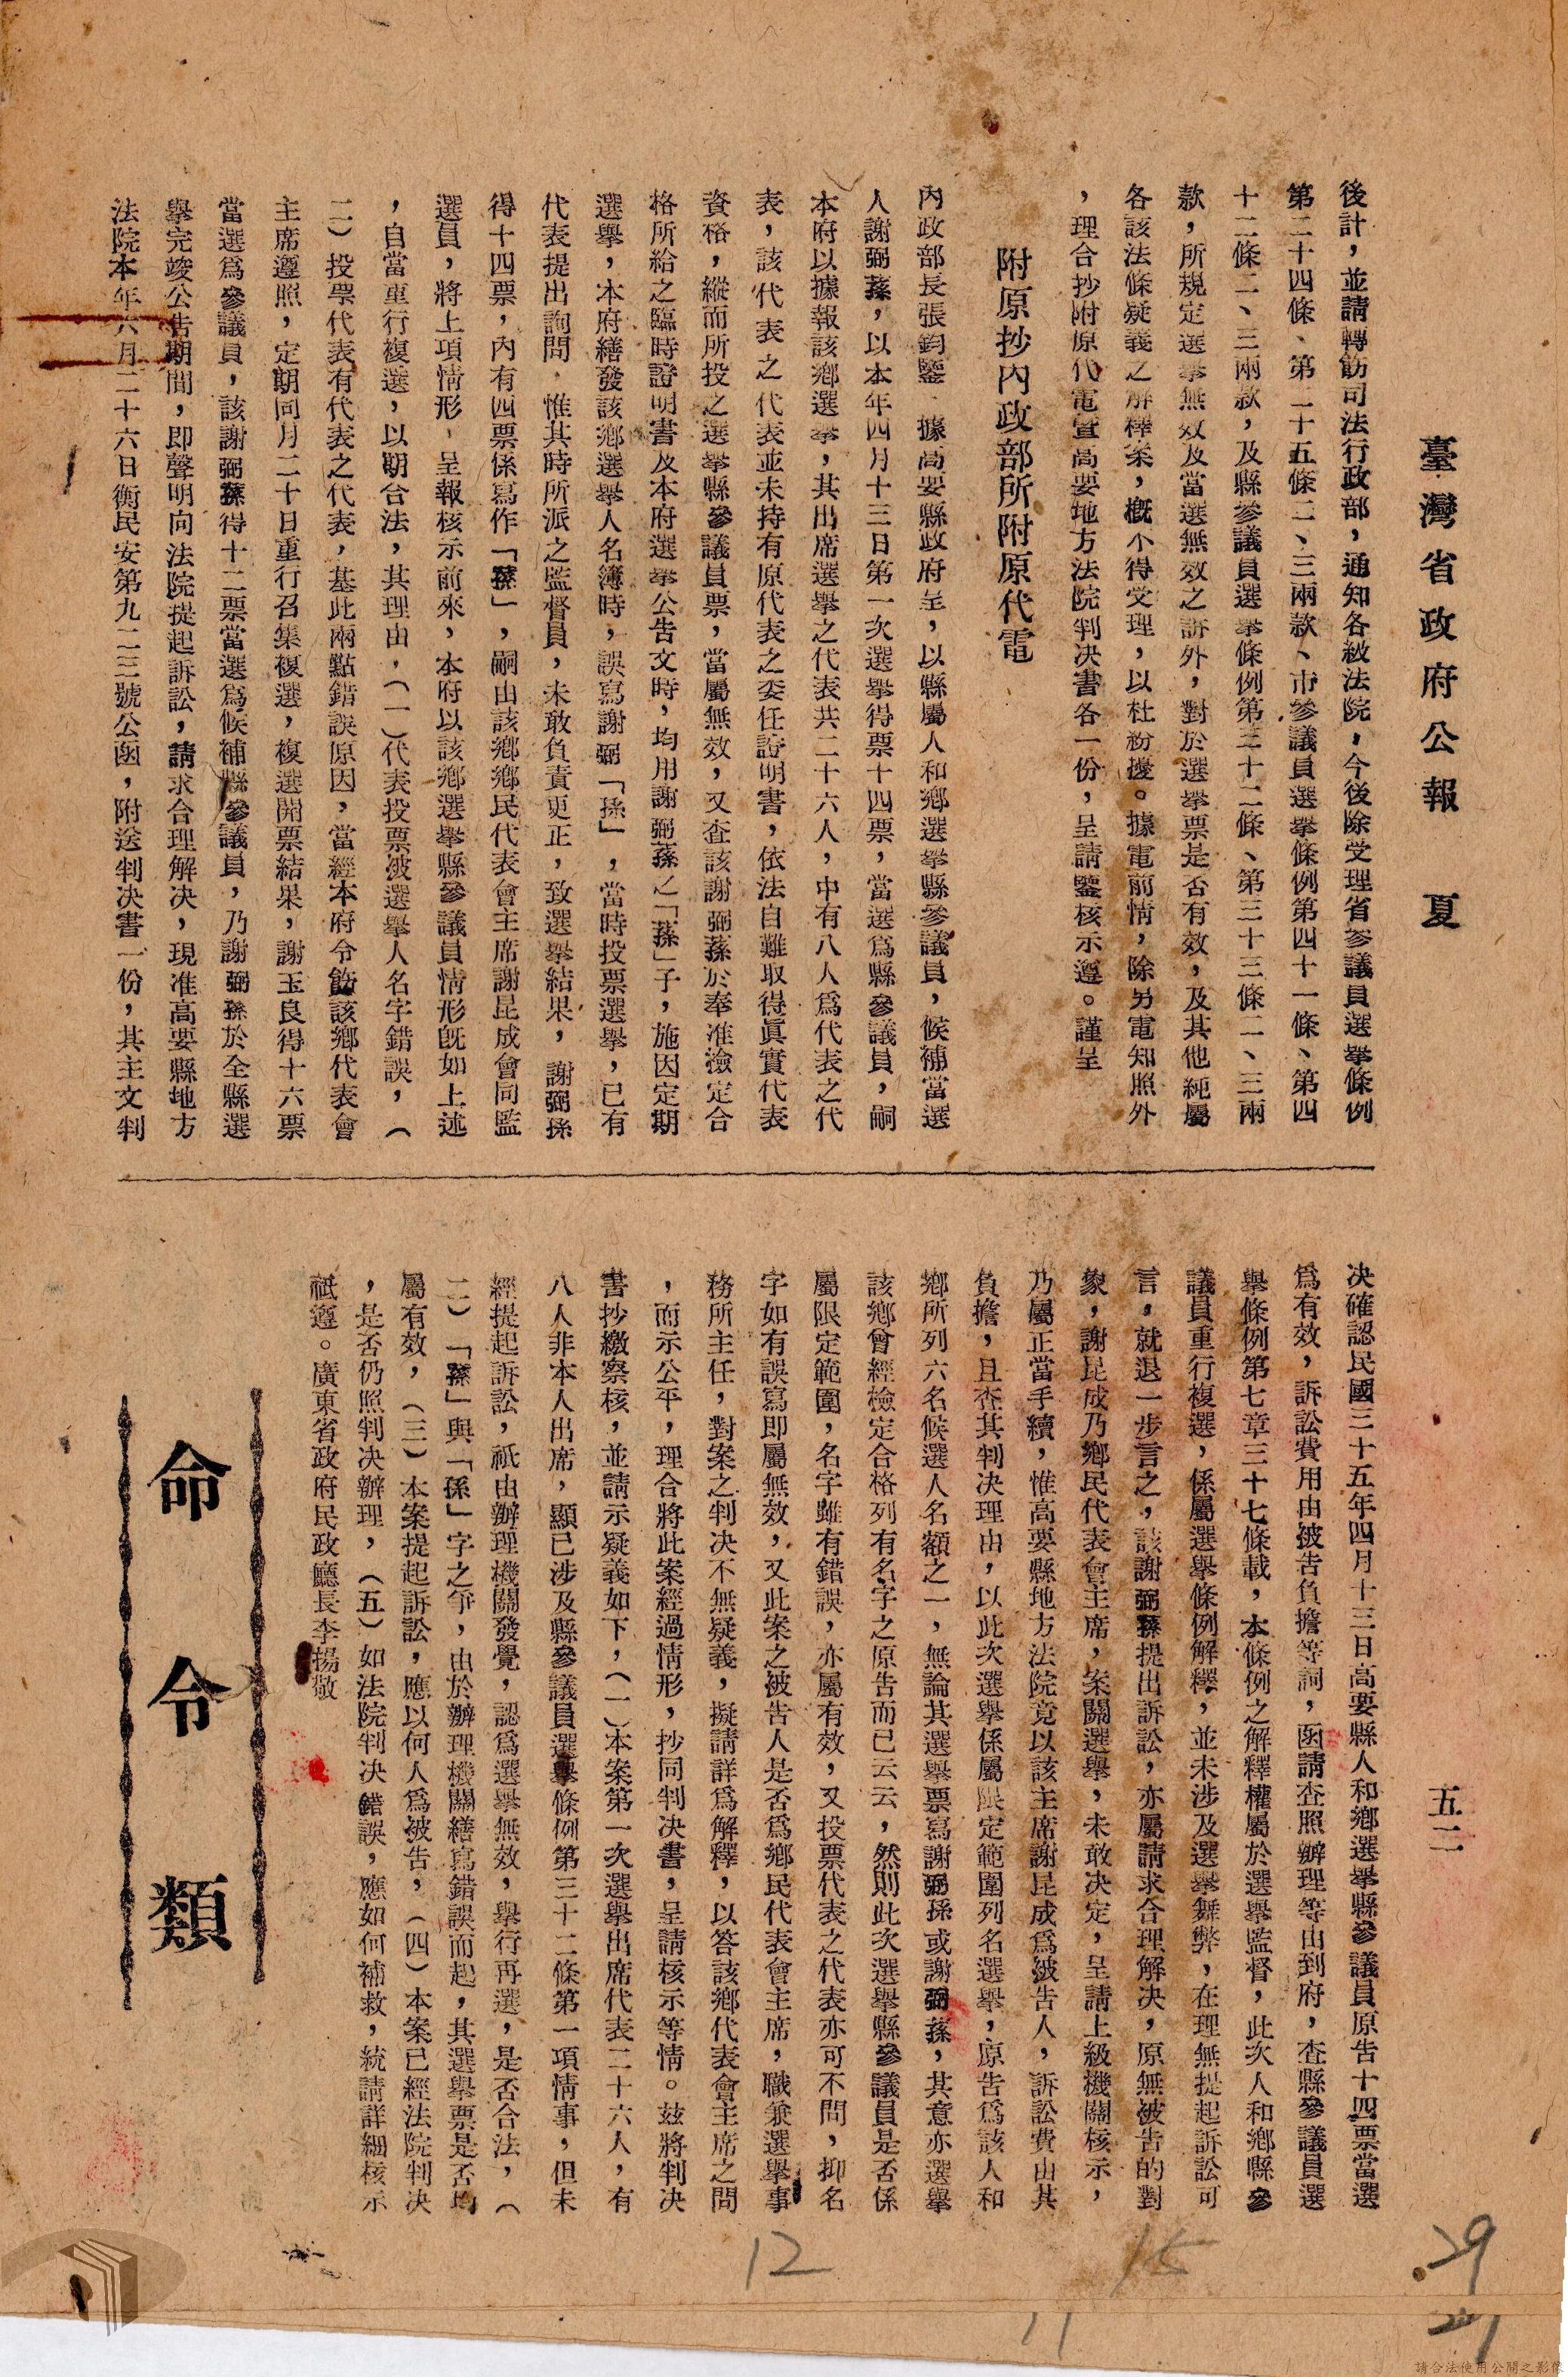 臺灣省政府公報　夏
五二
後計，並請轉飭司法行政部，通知各級法院，今後除受理省參議員選舉條例
第二十四條、第二十五條二、三兩款、市參議員選舉條例第四十一條、第四
十二條二、三兩款，及縣參議員選舉條例第三十二條、第三十三條二、三兩
款，所規定選舉無效及當選無效之訴外，對於選舉票是否有效，及其他純屬
各該法條疑義之解釋案，概不得受理，以杜紛擾。據電前情，除另電知照外
，理合抄附原代電暨高要地方法院判决書各一份，呈請鑒核示遵。謹呈
附原抄內政部所附原代電
內政部長張鈞鑒　據高要縣政府呈，以縣屬人和鄉選舉縣參議員，候補當選
人謝弼蓀，以本年四月十三日第一次選舉得票十四票，當選爲縣參議員，嗣
本府以據報該鄉選舉，其出席選舉之代表共二十六人，中有八人爲代表之代
表，該代表之代表並未持有原代表之委任證明書，依法自難取得眞實代表
資格，縱而所投之選舉縣參議員票，當屬無效，又查該謝弼蓀於奉准檢定合
格所給之臨時證明書及本府選舉公告文時，均用謝弼蓀之「蓀」子，施因定期
選舉，本府繕發該鄉選舉人名簿時，誤寫謝弼「孫」，當時投票選舉，已有
代表提出詢問，惟其時所派之監督員，未敢負責更正，致選舉結果，謝弼孫
得十四票，內有四票係寫作「蓀」，嗣由該鄉鄉民代表會主席謝昆成會同監
選員，將上項情形，呈報核示前來，本府以該鄉選舉縣參議員情形旣如上述
，自當重行複選，以期合法，其理由，（一）代表投票被選舉人名字錯誤，（
二）投票代表有代表之代表，基此兩點錯誤原因，當經本府令飭該鄉代表會
主席遵照，定期同月二十日重行召集複選，複選開票結果，謝玉良得十六票
當選爲參議員，該謝弼蓀得十二票當選爲候補縣參議員，乃謝弼孫於全縣選
舉完竣公告期間，即聲明向法院提起訴訟，請求合理解决，現准高要縣地方
法院本年六月二十六日衡民安第九二三號公函，附送判决書一份，其主文判
决確認民國三十五年四月十三日高要縣人和鄉選舉縣參議員原告十四票當選
爲有效，訴訟費用由被告負擔等詞，函請查照辦理等由到府，查縣參議員選
舉條例第七章三十七條載，本條例之解釋權屬於選舉監督，此次人和鄉縣參
議員重行複選，係屬選舉條例解釋，並未涉及選舉舞弊，在理無提起訴訟可
言，就退一步言之，該謝弼蓀提出訴訟，亦屬請求合理解决，原無被告的對
象，謝昆成乃鄉民代表會主席，案關選舉，未敢决定，呈請上級機關核示，
乃屬正當手續，惟高要縣地方法院竟以該主席謝昆成爲被告人，訴訟費由其
負擔，且查其判决理由，以此次選舉係屬限定範圍列名選舉，原告爲該人和
鄉所列六名候選人名額之一，無論其選舉票寫謝弼孫或謝弼蓀，其意亦選舉
該鄉曾經檢定合格列有名字之原告而已云云，然則此次選舉縣參議員是否係
屬限定範圍，名字雖有錯誤，亦屬有效，又投票代表之代表亦可不問，抑名
字如有誤寫即屬無效，又此案之被告人是否爲鄉民代表會主席，職兼選舉事
務所主任，對案之判决不無疑義，擬請詳爲解釋，以答該鄉代表會主席之問
，而示公平，理合將此案經過情形，抄同判决書，呈請核示等情。茲將判决
書抄繳察核，並請示疑義如下，（一）本案第一次選舉出席代表二十六人，有
八人非本人出席，顯已涉及縣參議員選舉條例第三十二條第一項情事，但未
經提起訴訟，祇由辦理機關發覺，認爲選舉無效，舉行再選，是否合法，（
二）「蓀」與「孫」字之爭，由於辦理機關繕寫錯誤而起，其選舉票是否均
屬有效，（三）本案提起訴訟，應以何人爲被告，（四）本案已經法院判决
，是否仍照判决辦理，（五）如法院判决錯誤，應如何補救，統請詳細核示
祗遵。廣東省政府民政廳長李揚敬
命令類
12
15
29
11
請合法使用公開之影像